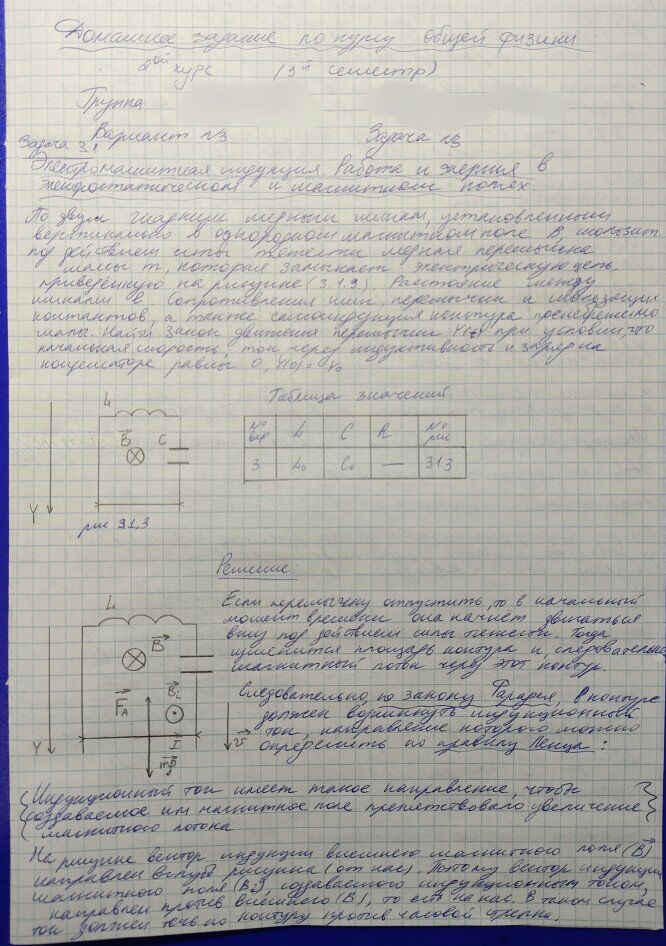 Домашнее задание по курсу общей физики
2ой курс (3й семестр)
Группа
Вариант №3 Задача №3
Задача 3.1
Электромагнитная индукция. Работа и энергия в
электростатическом и магнитном полях.
По двум гладким медным шинам, установленными
вертикально в однородном магнитном поле B скользит
под действием силы тяжести медная перемычка
массы m, которая замыкает электрическую цепь,
приведённую на рисунке (3.1.3). Расстояние между
шинами l. Сопротивления шин, перемычки и скользящих
контактов, а также самоиндукция контура пренебрежимо
малы. Найти закон движения перемычки Y(t) при условии, что
начальная скорость, ток через индуктивность и заряд на
конденсаторе равны 0, Y(0) = Y₀
Таблица значений
№ вар L C R № рис
3 L₀ C₀ — 3.1.3
L
B C
Y
рис 3.1.3
Решение
L
B
Bi
FA
I
Y
mg
v
Если перемычку отпустить, то в начальный
момент времени она начнёт двигаться
вниз под действием силы тяжести. Тогда
изменится площадь контура и, следовательно,
магнитный поток через этот контур.
Следовательно, по закону Фарадея, в контуре
должен возникнуть индукционный
ток, направление которого можно
определить по правилу Ленца:
Индукционный ток имеет такое направление, чтобы
создаваемое им магнитное поле препятствовало увеличению
магнитного потока
На рисунке вектор индукции внешнего магнитного поля (B)
направлен вглубь рисунка (от нас). Поэтому вектор индукции
магнитного поля (Bi), создаваемого индукционным током,
направлен против внешнего (B), то есть на нас. В таком случае
ток должен течь по контуру против часовой стрелки.